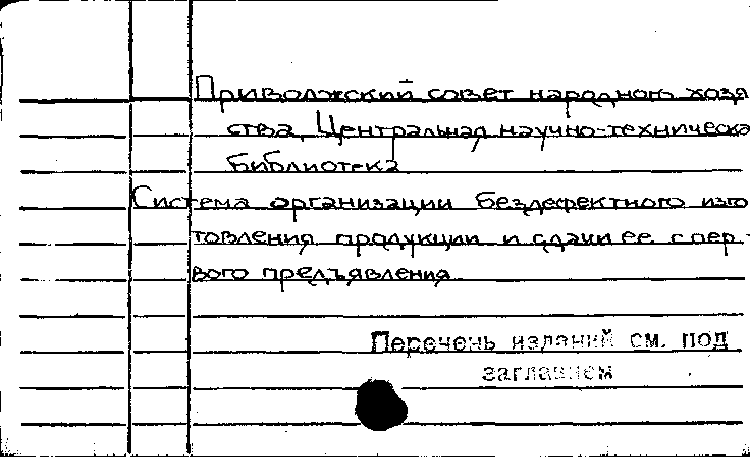 Приволжский совет народного хозя
ства, Центральная научно-техническа
библиотека
Система организации бездефектного изго
товления продукции и сдачи ее с пер
вого предъявления
Перечень изданий см. под
заглавием